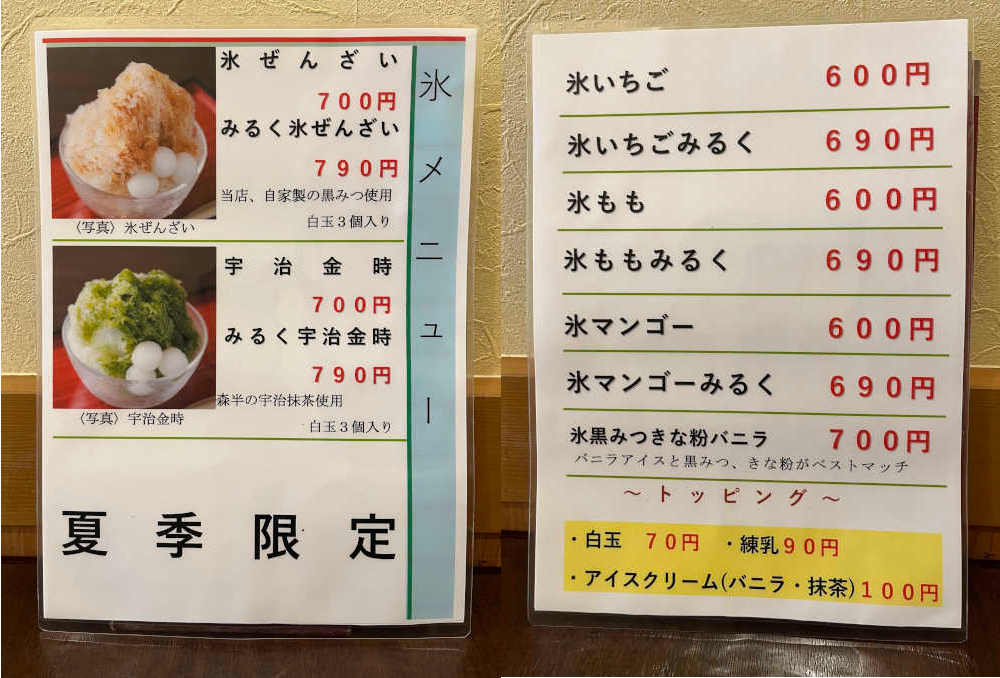 氷メニュー
氷ぜんざい
700円
みるく氷ぜんざい
790円
当店、自家製の黒みつ使用
白玉3個入り
(写真)氷ぜんざい
宇治金時
700円
みるく宇治金時
790円
森半の宇治抹茶使用
白玉3個入り
(写真)宇治金時
夏季限定
氷いちご 600円
氷いちごみるく 690円
氷もも 600円
氷ももみるく 690円
氷マンゴー 600円
氷マンゴーみるく 690円
氷黒みつきな粉バニラ 700円
バニラアイスと黒みつ、きな粉がベストマッチ
~トッピング~
・白玉 70円 ・練乳90円
・アイスクリーム(バニラ・抹茶)100円